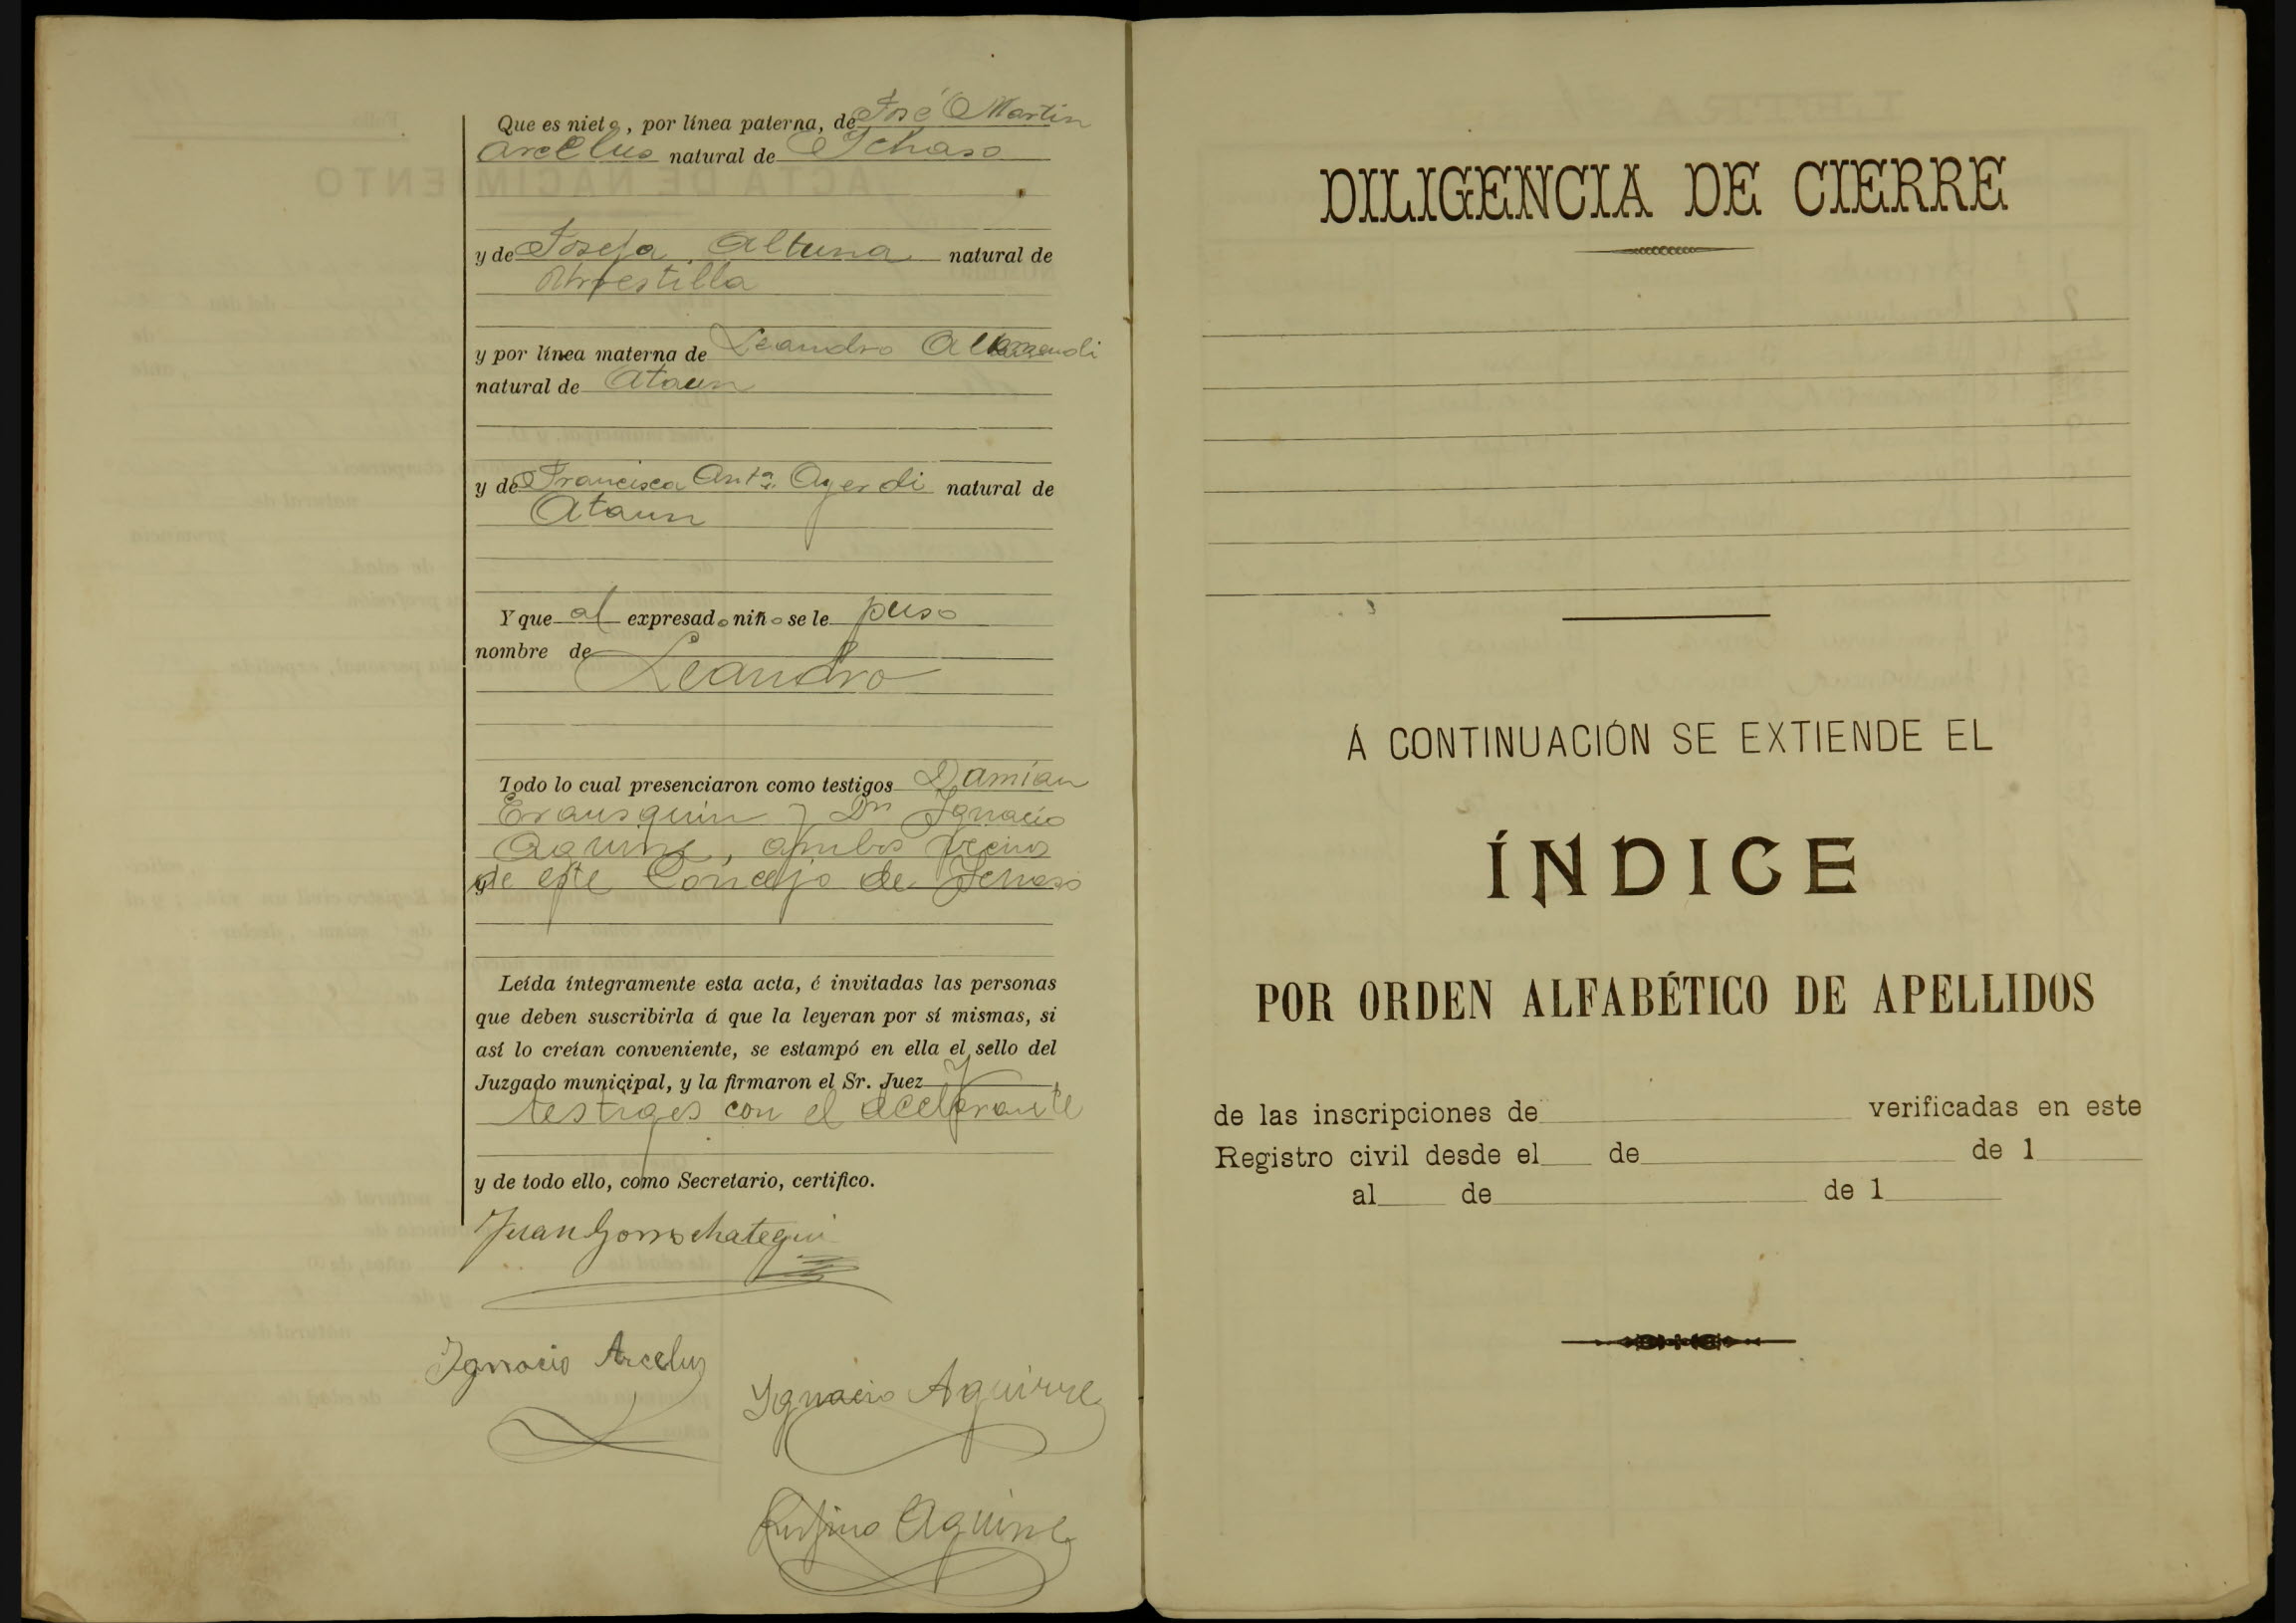 Que es nieto, por línea paterna, de José Martin
Arcelus natural de Ychaso
y de Josefa Altuna natural de
y por línea materna de Leandro
natural de Ataun
y de Francisca Antª Ayerdi natural de
Ataun
Y que al expresado niño se le puso
nombre de
Leandro
Todo lo cual presenciaron como testigos Damian
Erausquin y Dn Ignacio
Aguirre, ambos vecinos
de este Concejo de Ychaso
Leída íntegramente esta acta, é invitadas las personas
que deben suscribirla á que la leyeran por sí mismas, si
así lo creían conveniente, se estampó en ella el sello del
Juzgado municipal, y la firmaron el Sr. Juez y
testigos con el
y de todo ello, como Secretario, certifico.
Juan Gorrochategui
Ignacio Arcelus
Ygnacio Aguirre
Rufino Aguirre
DILIGENCIA DE CIERRE
Á CONTINUACIÓN SE EXTIENDE EL
ÍNDICE
POR ORDEN ALFABÉTICO DE APELLIDOS
de las inscripciones de verificadas en este
Registro civil desde el de de 1
al de de 1